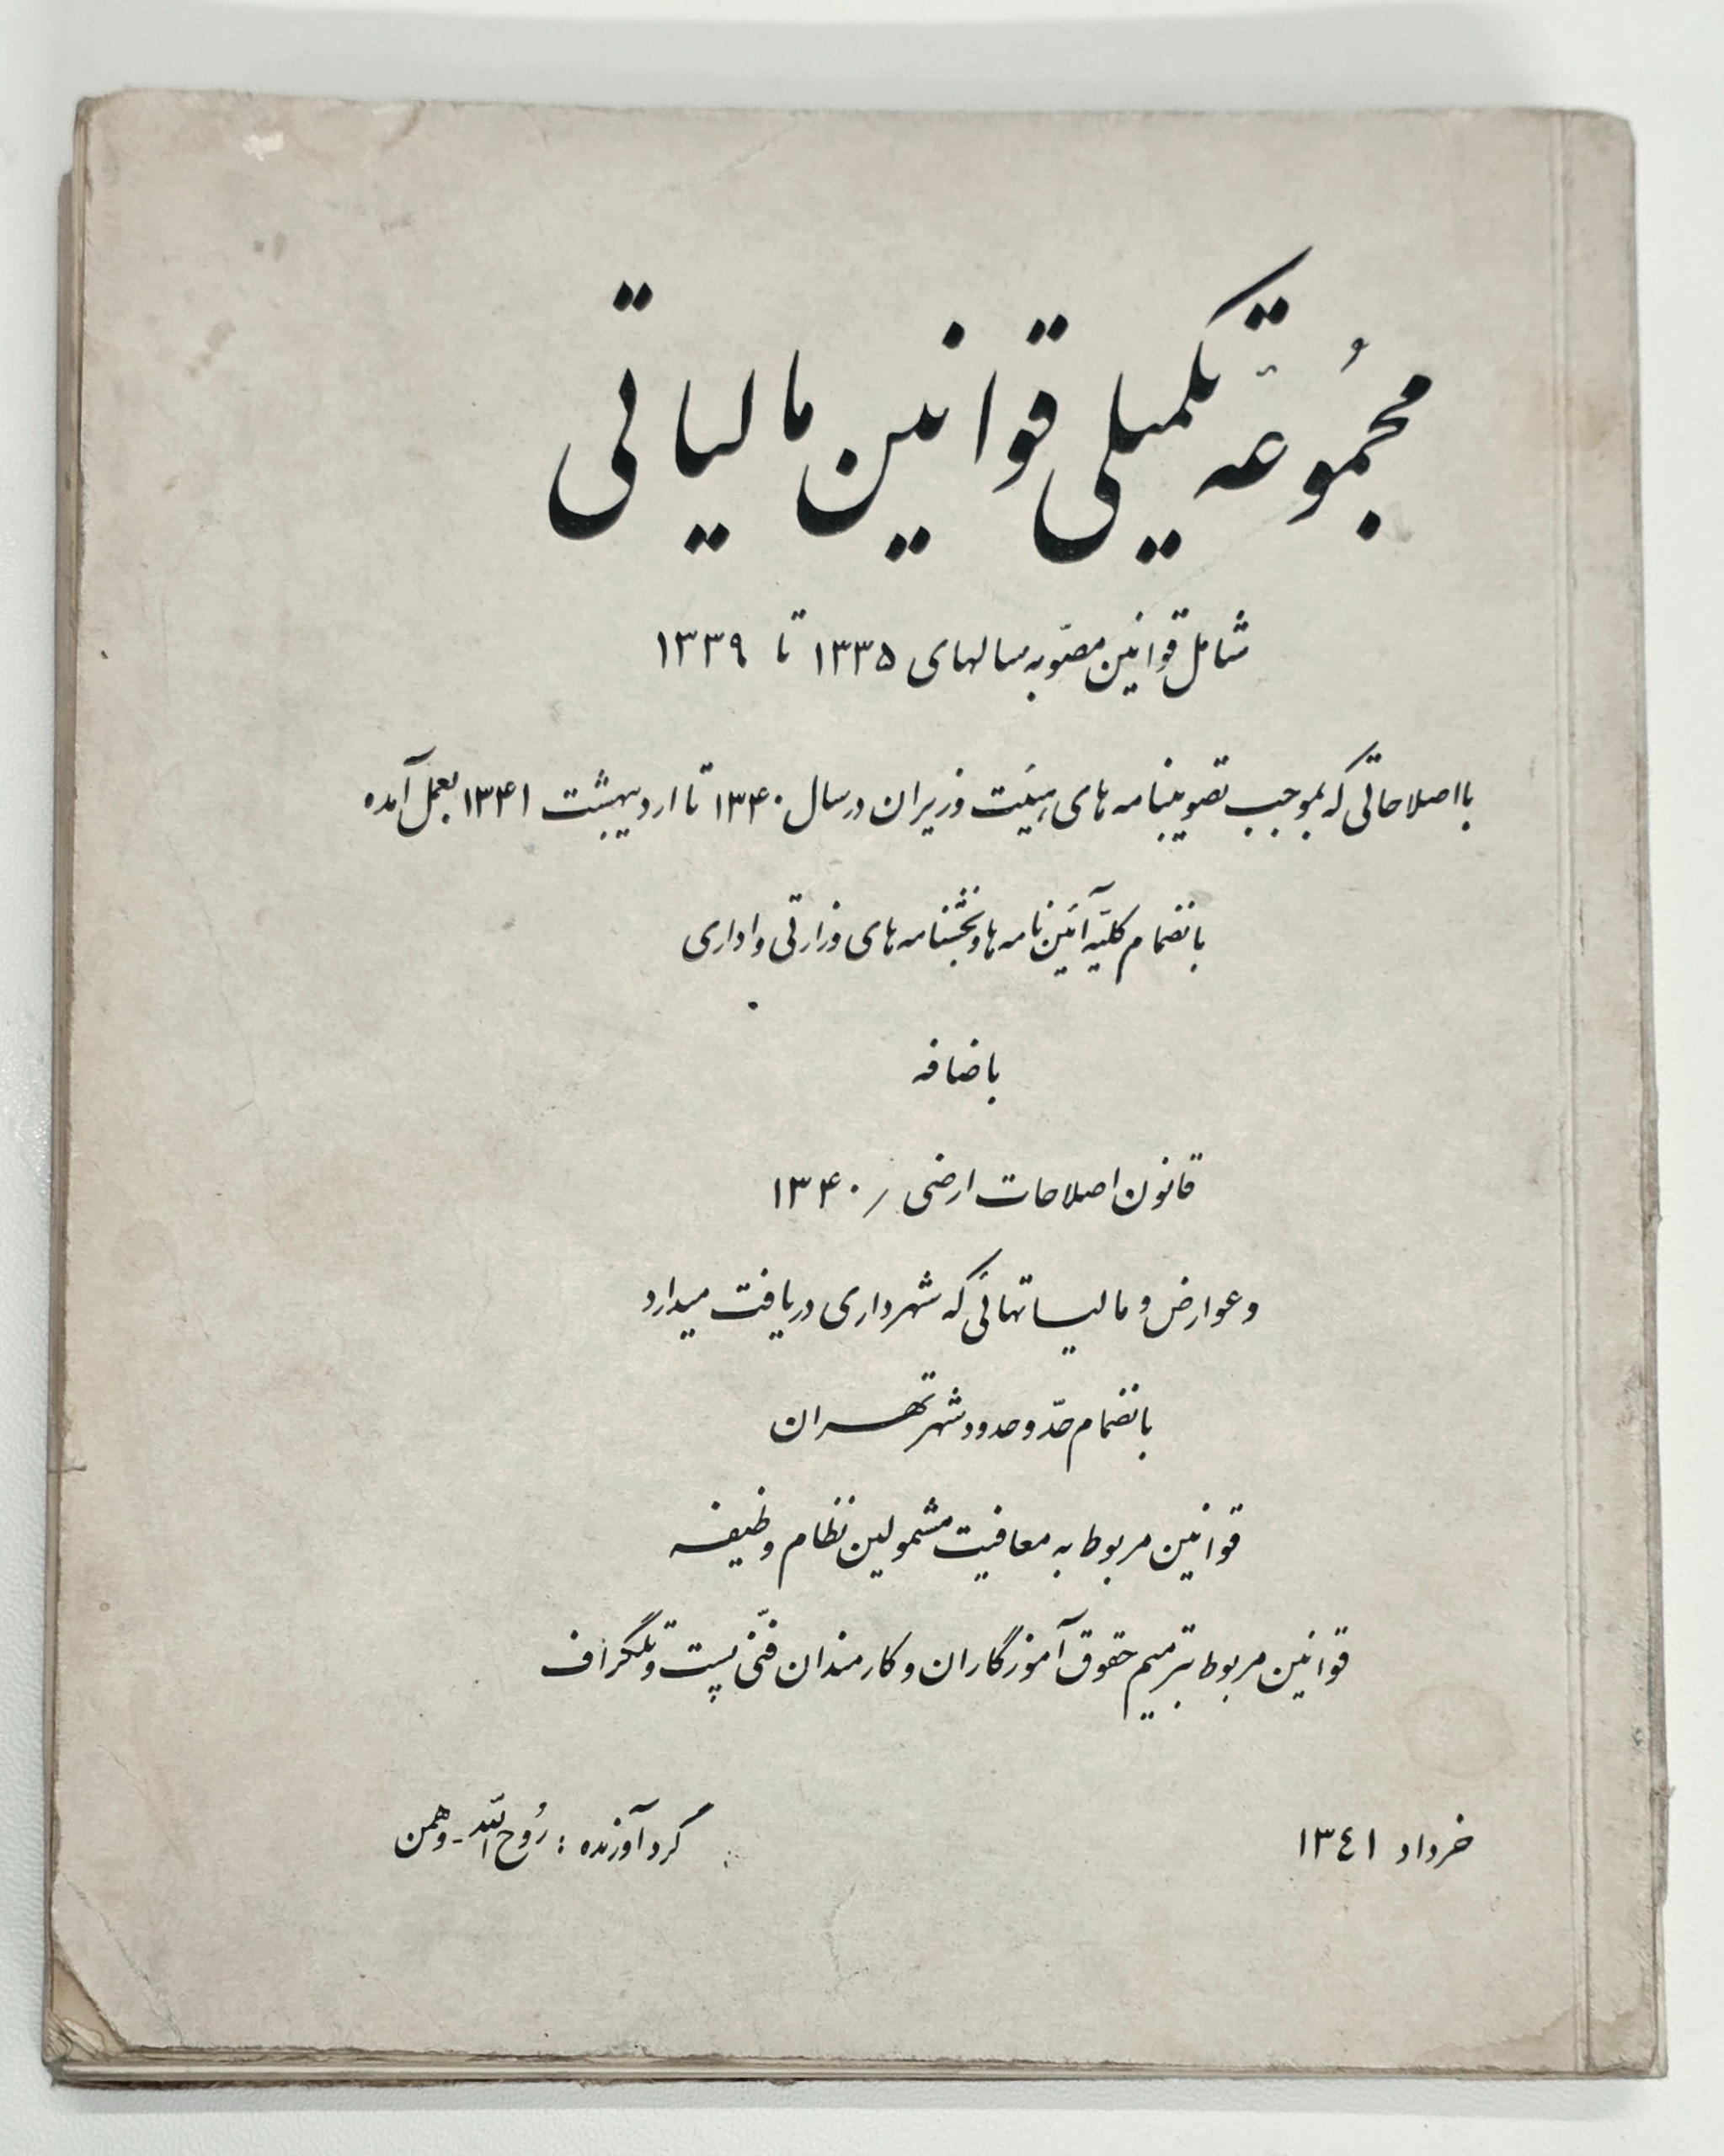 مجموعهٔ تکمیلی قوانین مالیاتی
شامل قوانین مصوّبه سالهای ۱۳۳۵ تا ۱۳۳۹
با اصلاحاتی که بموجب تصویبنامه های هیئت وزیران در سال ۱۳۴۰ تا اردیبهشت ۱۳۴۱ بعمل آمده
بانضمام کلیّه آئین نامه ها و بخشنامه های وزارتی و اداری
باضافه
قانون اصلاحات ارضی / ۱۳۴۰
و عوارض و مالیاتهائی که شهرداری دریافت میدارد
بانضمام حدّ و حدود شهر تهران
قوانین مربوط به معافیت مشمولین نظام وظیفه
قوانین مربوط بترمیم حقوق آموزگاران و کارمندان فنّی پست و تلگراف
خرداد ۱۳٤۱
گردآورنده : رُوح الله - وهمن